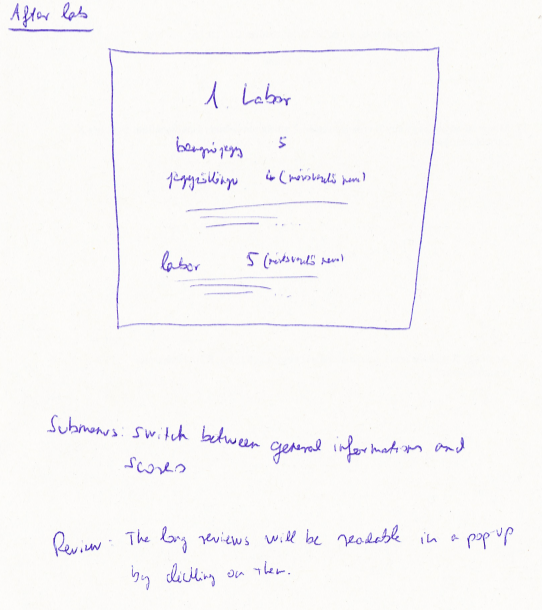 After lab
1. Labor
beugró jegy 5
jegyzőkönyv 4 (javító neve)
labor 5 (javító neve)
Submenus: switch between general information and
scores
Review: The long reviews will be readable in a pop-up
by clicking on them.